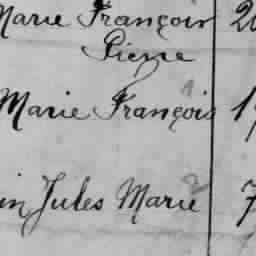 Marie François 2
Pierre
Marie François 1
in Jules Marie 7